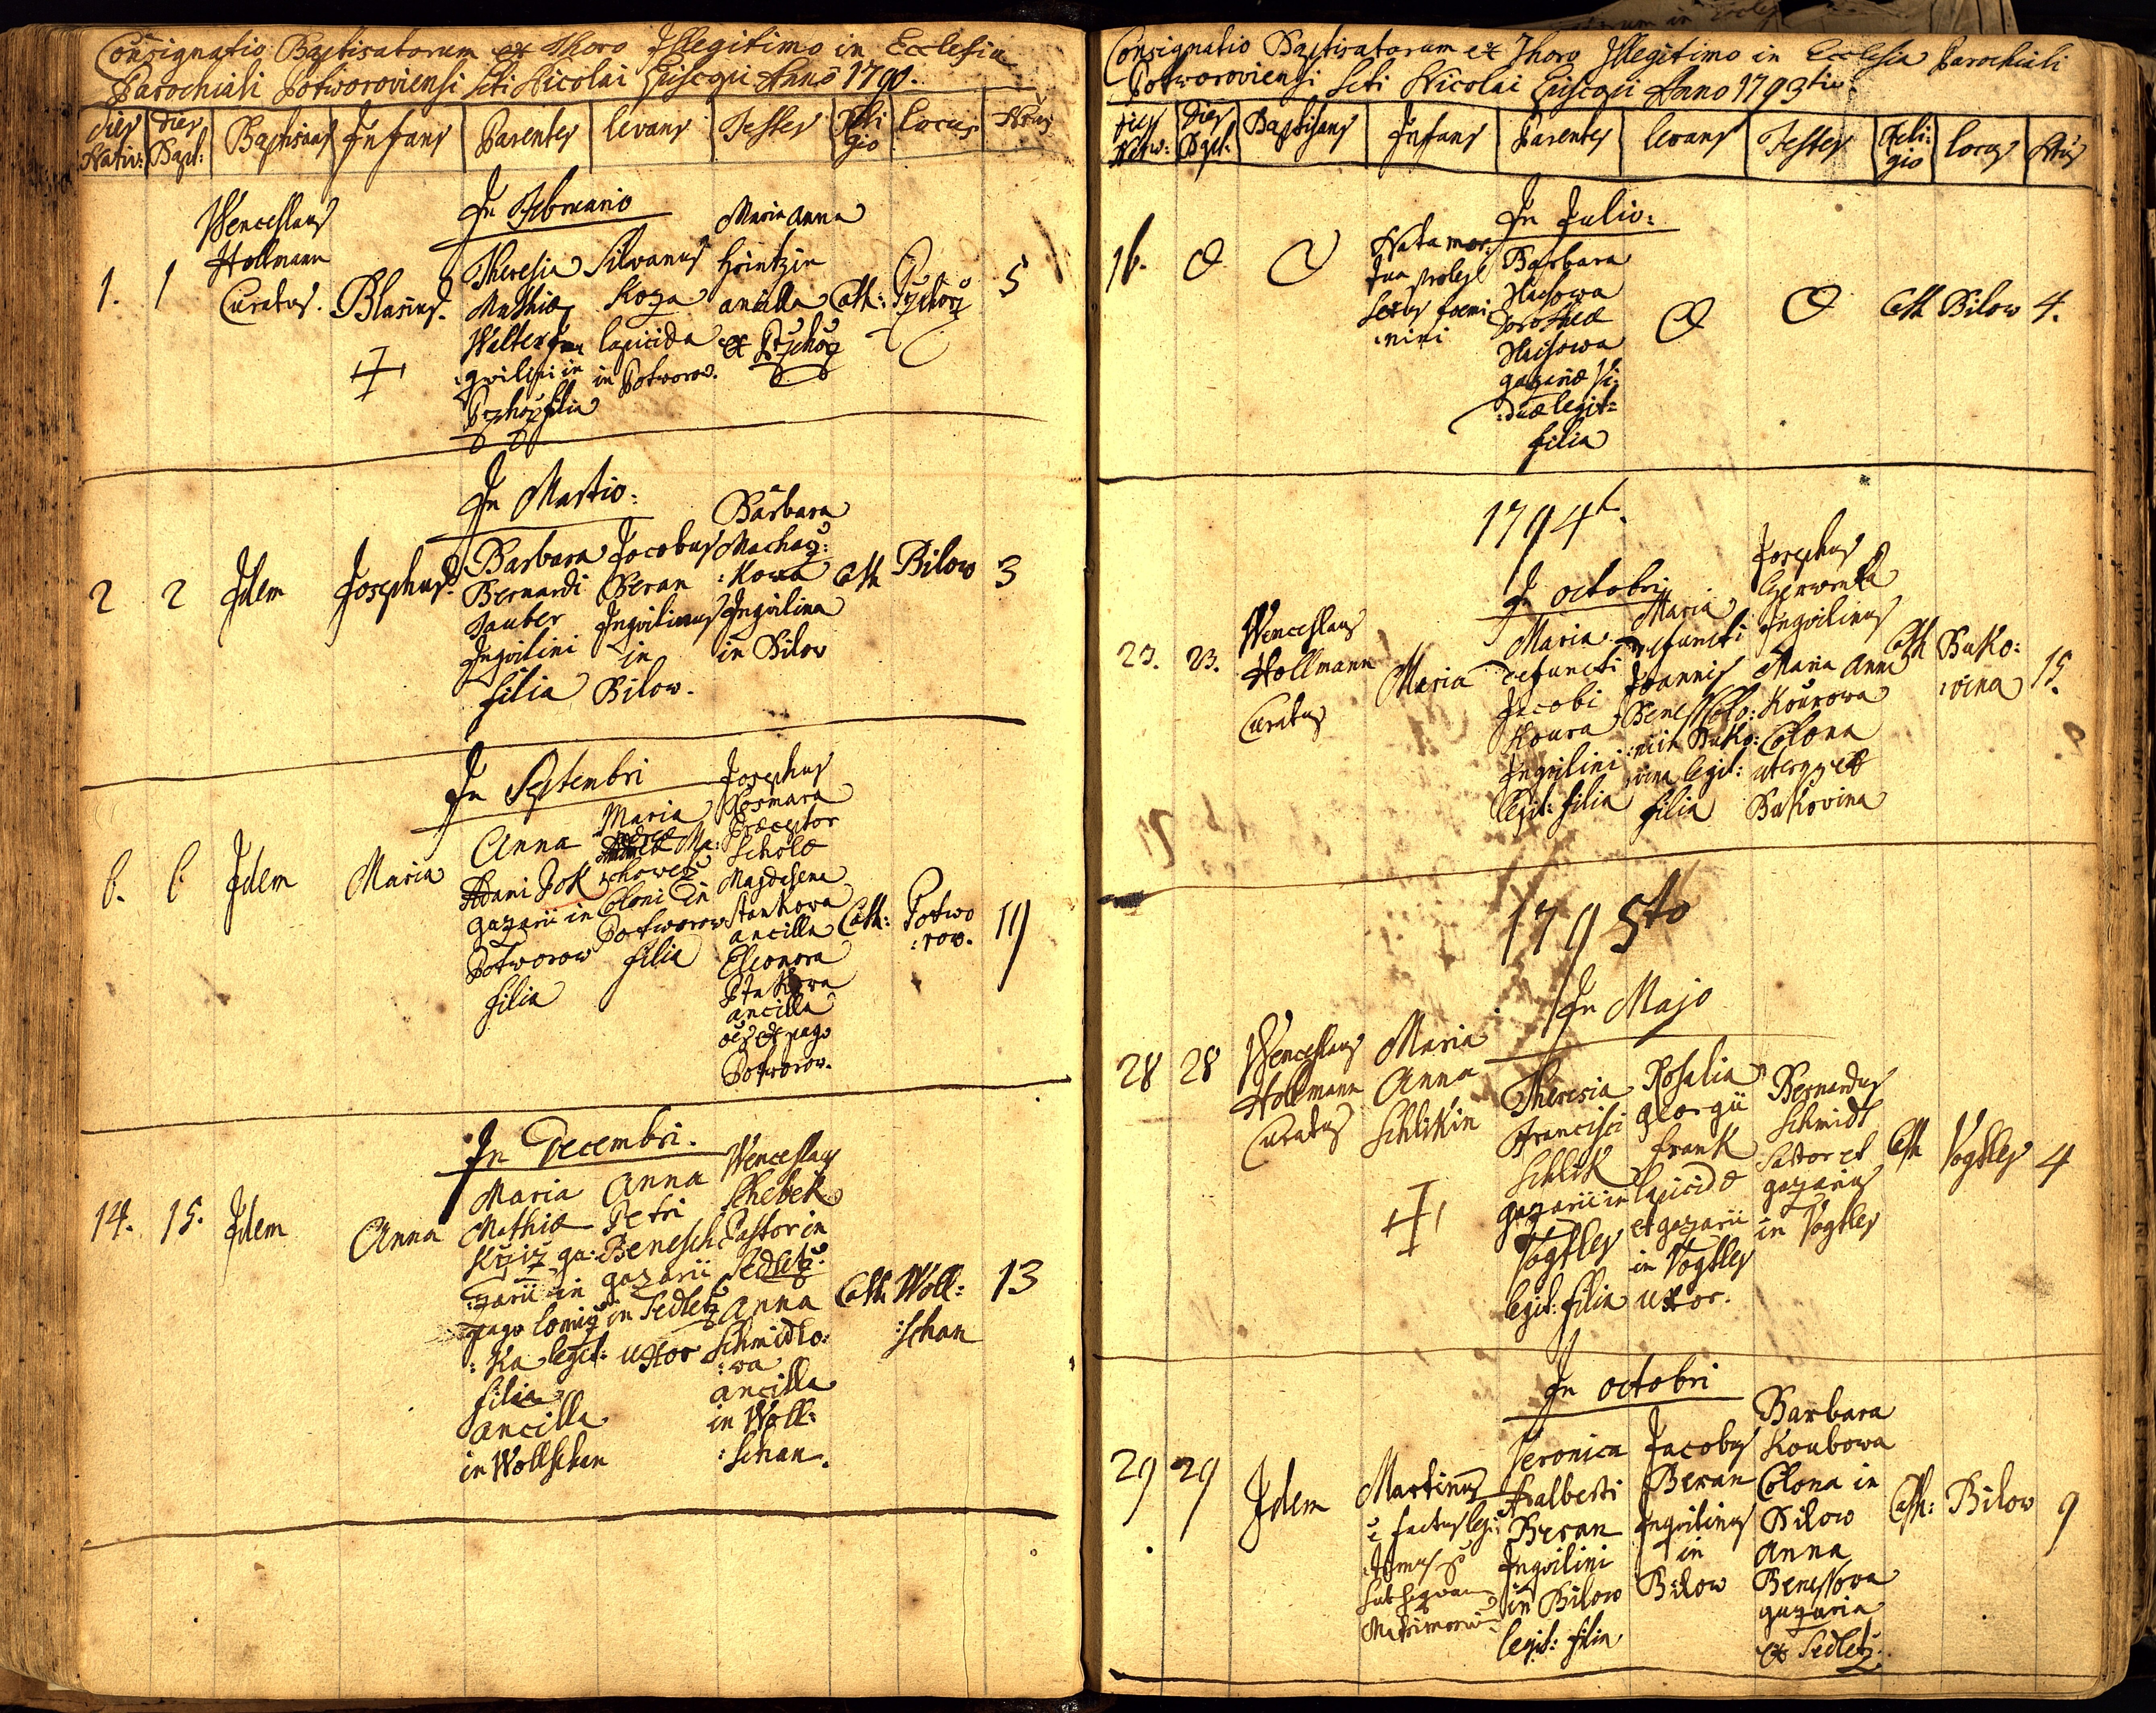 Consignatio Baptisatorum ex Thoro Illegitimo in Ecclesia
Parochiali Potworoviensi Scti Nicolai Episcopi Anno 1790.
dies Nativ: dies Bapt: Baptisans Infans Parentes levans Testes Reli gio Locus Nrus
In Februario
1. 1
Wenceslaus
Hollmann
Curatus.
Blasius.
Theresia
Mathiæ
Walter In
:qvilini in
filia
Silvanus
Koza
lapicida
in Potworow.
Maria Anna
Hrintzin
ancilla
ex
Cath:
5
In Martio:
2 2 Idem Josephus.
Barbara
Bernardi
Tauber
Inqvilini
filia
Jocobus
Beran
Inqvilinus
in
Bilow.
Barbara
Machaz:
:kowa
Inqvilina
in Bilow
Cath Bilow 3
In Septembri
6. 6 Idem Maria
Anna
Adami Pok
gazarii in
Potworow
filia
Maria
Ma:
:chowetz
Coloni in
Potworow
filia
Josephus
Kosmara
Præceptor
Scholæ
Magdelena
Stankowa
ancilla
Eleonora
ancilla
oes ex pago
Potworow.
Cath: Potwo
:row.
19
In Decembri.
14. 15. Idem Anna
Maria
Mathiæ
Krziz ga:
:zarii in
pago Lomiz
:ka legit:
filia
ancilla
in Wollschan
Anna
Petri
Benesch
gazarii
in Sedletz
uxor
Wenceslaus
Chebek
Pastor in
Sedletz.
Anna
Schmidlo:
:wa
ancilla
in Woll:
:schan.
Cath. Woll:
:schan
13
Consignatio Baptisatorum ex Thoro Illegitimo in Ecclesia Parochiali
Potworoviensi Scti Nicolai Episcopi Anno 1793tio.
dies Nativ: dies Bapt: Baptisans Infans Parentes levans Testes Reli: gio Locus Nrus
In Julio:
16.
Nata mor:
tua proles
sexus foemi
:nini
Barbara
Dorotheæ
gazariæ Vi:
:duæ legit:
filia
Cath Bilow 4.
1794t.
In octobri
23. 23.
Wenceslaus
Hollmann
Curatus
Maria
Maria
defuncti
Jacobi
Koura
Inqvilini
legit: filia
Maria
defuncti
Joannis
Beness Colo:
:ni in Buko:
:vina legit:
filia
Josephus
Czerwenka
Inqvilinus
Maria Anna
Kourowa
Colona
uterqz ex
Bukovina
Cath Buko:
:vina
15.
1795to
In Majo
28 28
Wenceslaus
Hollmann
Curatus
Maria
Anna
Schlikin
Theresia
Francisci
Schlik
gazarii in
Vogtles
legit: filia
Rosalia
Georgii
Frank
lapicidæ
et gazarii
in Vogtles
uxor.
Bernardus
Schmidt
Sartor et
gazarius
in Vogtles
Cath Vogtles 4
In octobri
29 29 Idem
Martinus
factus legi:
:timus p
subsequum
Matrimonium
Veronica
Adalberti
Beran
Inqvilini
in Bilow
legit: filia
Jacobus
Beran
Inqvilinus
in
Bilow
Barbara
Koubowa
Colona in
Bilow
Anna
Benessowa
gazaria
ex Sedletz.
Cath: Bilow 9